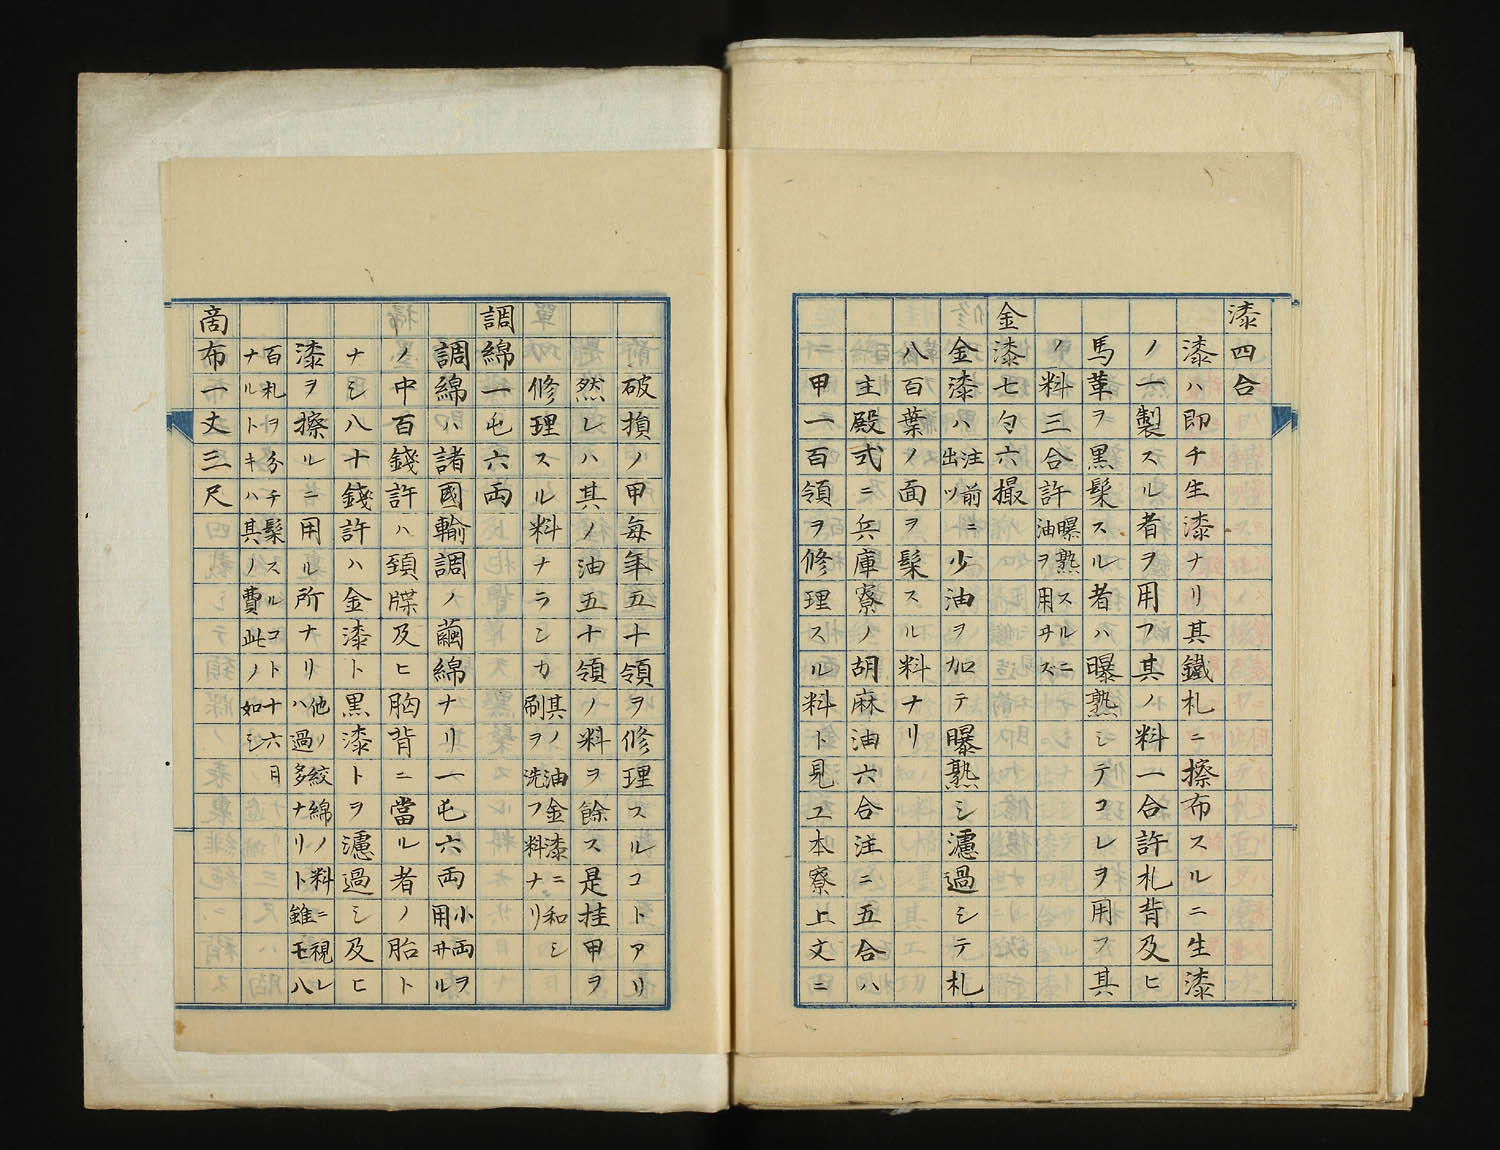 漆四合
漆ハ即チ生漆ナリ其鐵札ニ擦布スルニ生漆
ノ一製スル者ヲ用フ其ノ料一合許札背及ヒ
馬革ヲ黒髹スル者ハ曝熟シテコレヲ用フ其
ノ料三合許曝熟スルニ油ヲ用ヰズ
金漆七勺六撮
金漆ハ注前ニ出ツ少油ヲ加テ曝熟シ濾過シテ札
八百葉ノ面ヲ髹スル料ナリ
主殿式ニ兵庫寮ノ胡麻油六合注ニ五合ハ
甲一百領ヲ修理スル料ト見ユ本寮上文ニ
破損ノ甲毎年五十領ヲ修理スルコトアリ
然レハ其ノ油五十領ノ料ヲ餘ス是挂甲ヲ
修理スル料ナランカ其ノ油金漆ニ和シ刷ヲ洗フ料ナリ
調綿一屯六兩
調綿ハ諸國輸調ノ繭綿ナリ一屯六兩小兩ヲ用ヰル
ノ中百錢許ハ頚牒及ヒ胸背ニ當ル者ノ胎ト
ナシ八十錢許ハ金漆ト黒漆トヲ濾過シ及ヒ
漆ヲ擦ルニ用ル所ナリ他ノ絞綿ノ料ニ視レハ過多ナリト雖モ八
百札ヲ分チ髹スルコト十六日ナルトキハ其ノ費此ノ如シ
商布一丈三尺